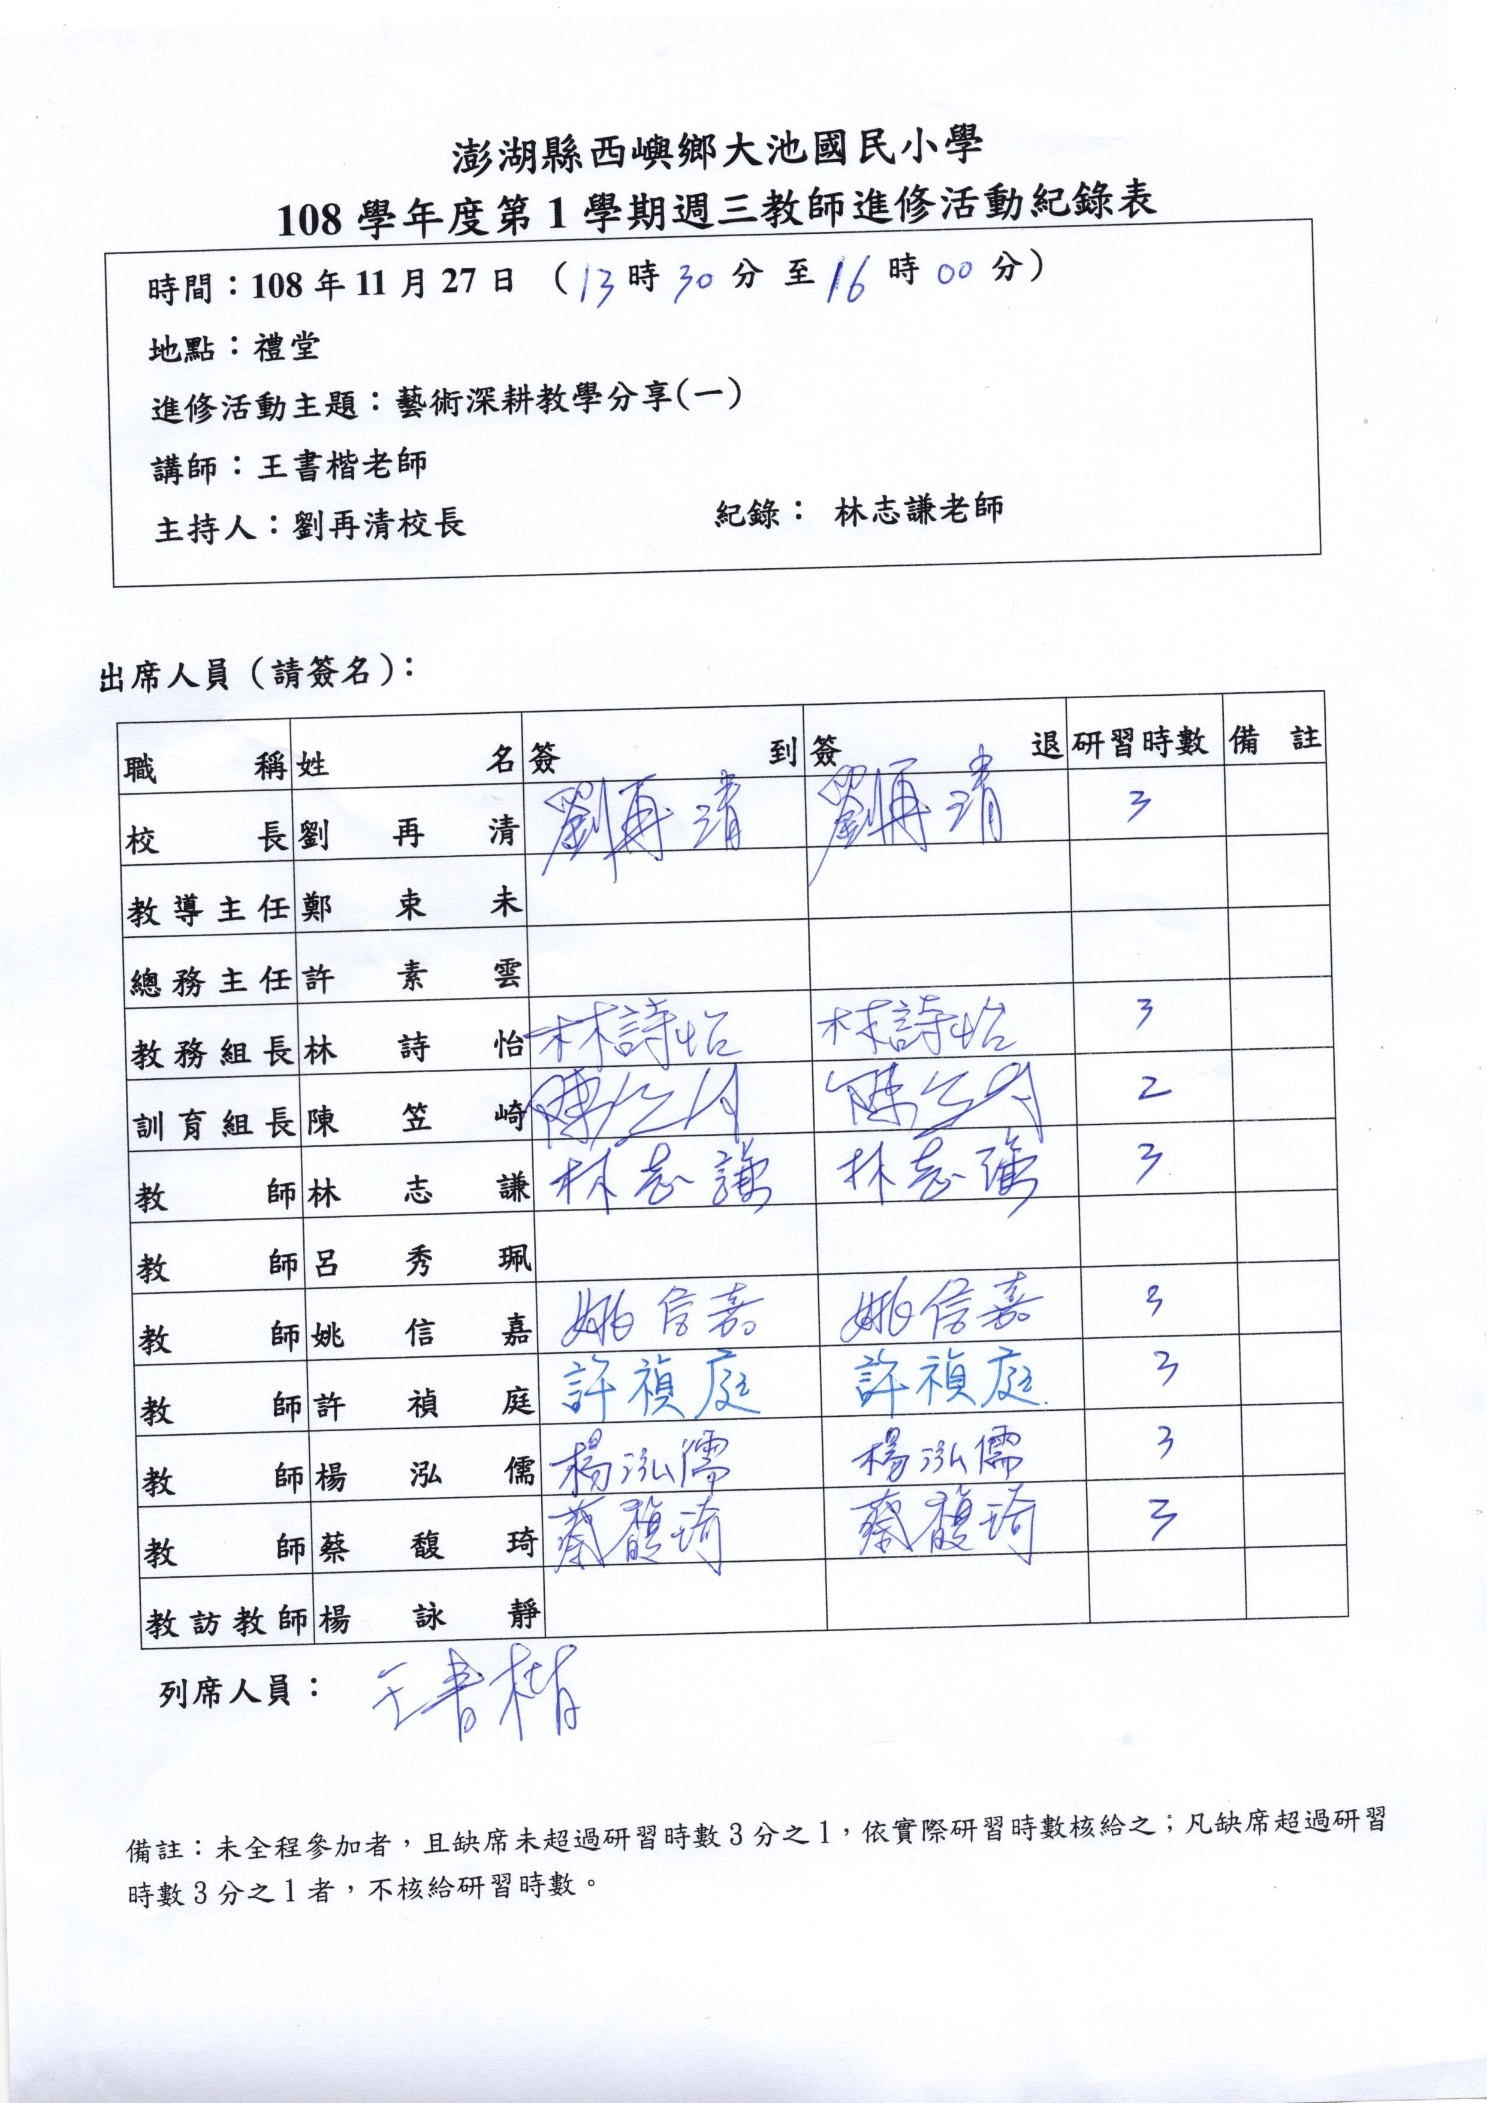 澎湖縣西嶼鄉大池國民小學
108 學年度第 1 學期週三教師進修活動紀錄表
時間：108 年 11 月 27 日 （13 時 30 分 至 16 時 00 分）
地點：禮堂
進修活動主題：藝術深耕教學分享(一)
講師：王書楷老師
主持人：劉再清校長 紀錄： 林志謙老師
出席人員（請簽名）：
職稱 姓名 簽到 簽退 研習時數 備註
校長 劉再清 劉再清 劉再清 3
教導主任 鄭束未
總務主任 許素雲
教務組長 林詩怡 林詩怡 林詩怡 3
訓育組長 陳笠崎 2
教師 林志謙 林志謙 林志謙 3
教師 呂秀珮
教師 姚信嘉 姚信嘉 姚信嘉 3
教師 許禎庭 許禎庭 許禎庭 3
教師 楊泓儒 楊泓儒 楊泓儒 3
教師 蔡馥琦 蔡馥琦 蔡馥琦 3
教訪教師 楊詠靜
列席人員： 王書楷
備註：未全程參加者，且缺席未超過研習時數 3 分之 1，依實際研習時數核給之；凡缺席超過研習
時數 3 分之 1 者，不核給研習時數。